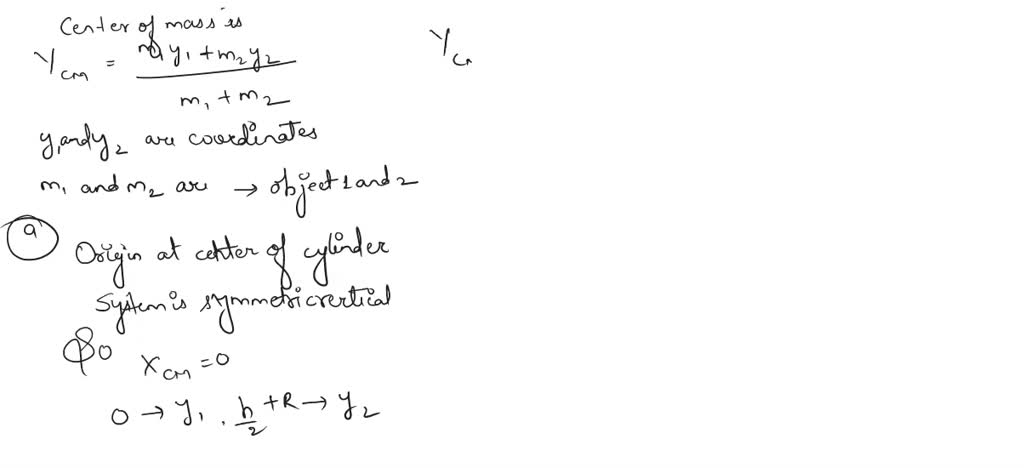 Center of mass is
Y_cm = (m_1 y_1 + m_2 y_2) / (m_1 + m_2)
y_1 and y_2 are coordinates
m_1 and m_2 are → object 1 and 2
a
Origin at center of cylinder
System is symmetric vertical
So X_cm = 0
0 → y_1 , h/2 + R → y_2
Y_c